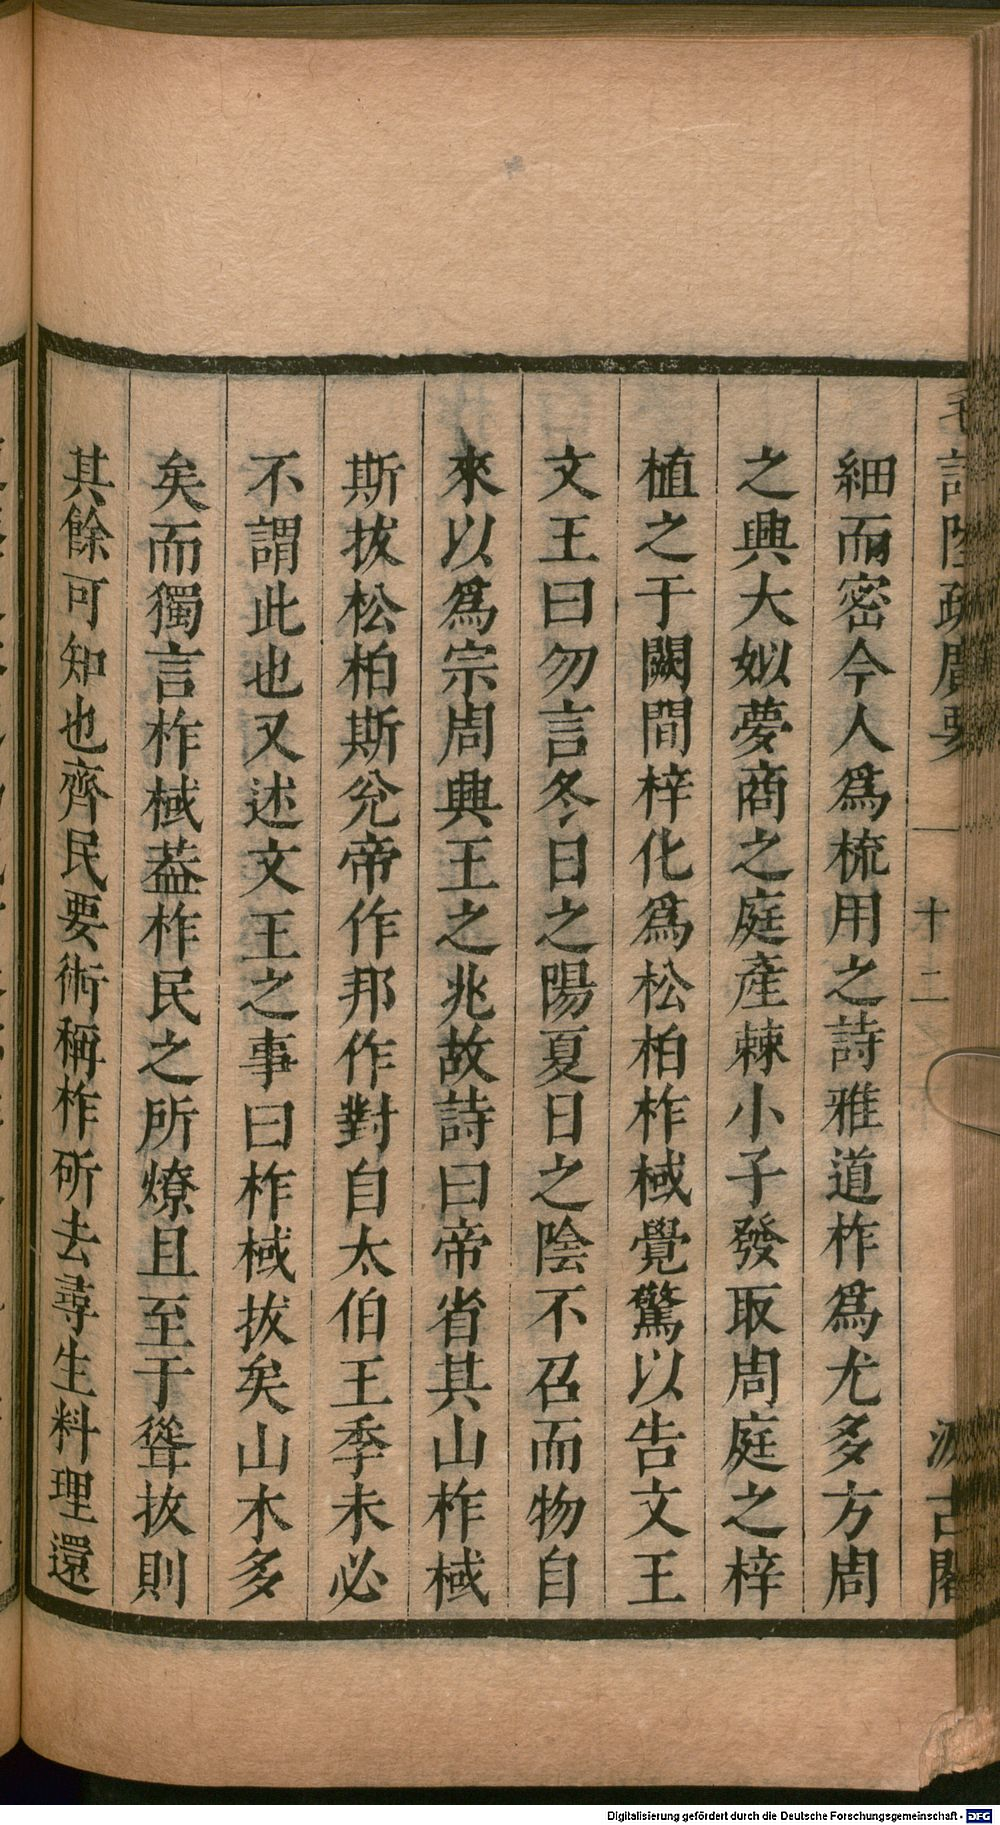 毛詩陸疏廣要
十二
汲古閣
細而密今人爲梳用之詩雅道柞爲尤多方周
之興大姒夢商之庭產棘小子發取周庭之梓
植之于闕間梓化爲松柏柞棫覺驚以告文王
文王曰勿言冬日之陽夏日之陰不召而物自
來以爲宗周興王之兆故詩曰帝省其山柞棫
斯拔松柏斯兊帝作邦作對自太伯王季未必
不謂此也又述文王之事曰柞棫拔矣山木多
矣而獨言柞棫葢柞民之所燎且至于聳拔則
其餘可知也齊民要術稱柞斫去尋生料理還
Digitalisierung gefördert durch die Deutsche Forschungsgemeinschaft - DFG